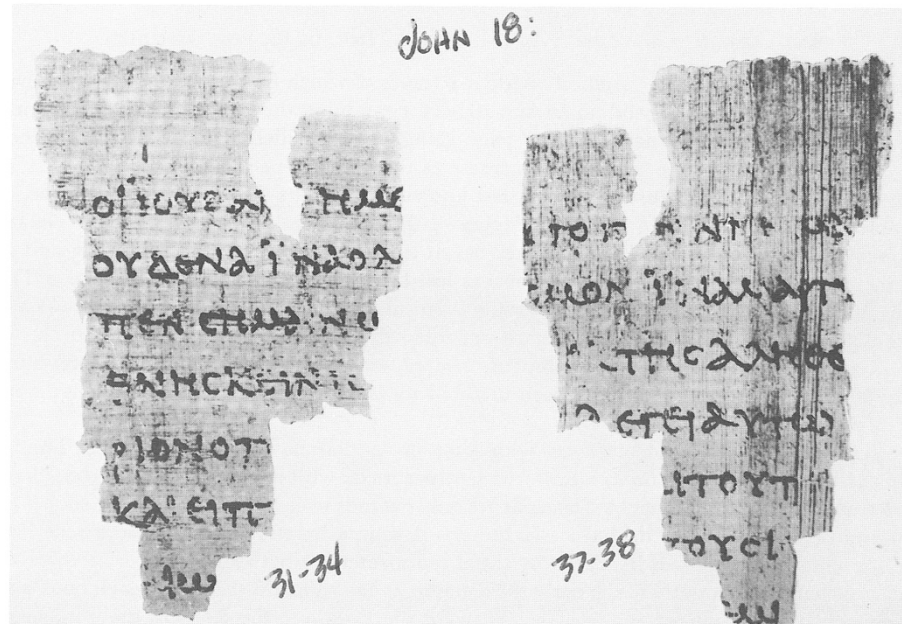 JOHN 18:
ΟΙ ΙΟΥΔΑΙ ΗΜΕ
ΟΥΔΕΝΑ ΪΝΑ ΟΛ
ΠΕΝ ϹΗΜΑΙΝΩ
ΘΝΗϹΚΕΙΝ ΙϹ
ΡΙΟΝ ΟΠ
ΚΑΙ ΕΙΠ
31-34
ϹΜΟΝ ΪΝΑ ΜΑΡΤΥ
ΤΗϹ ΑΛΗΘΕ
ΛΕΓΕΙ ΑΥΤΩ
ΑΙ ΤΟΥΤ
ΤΟΥϹ Ι
37-38